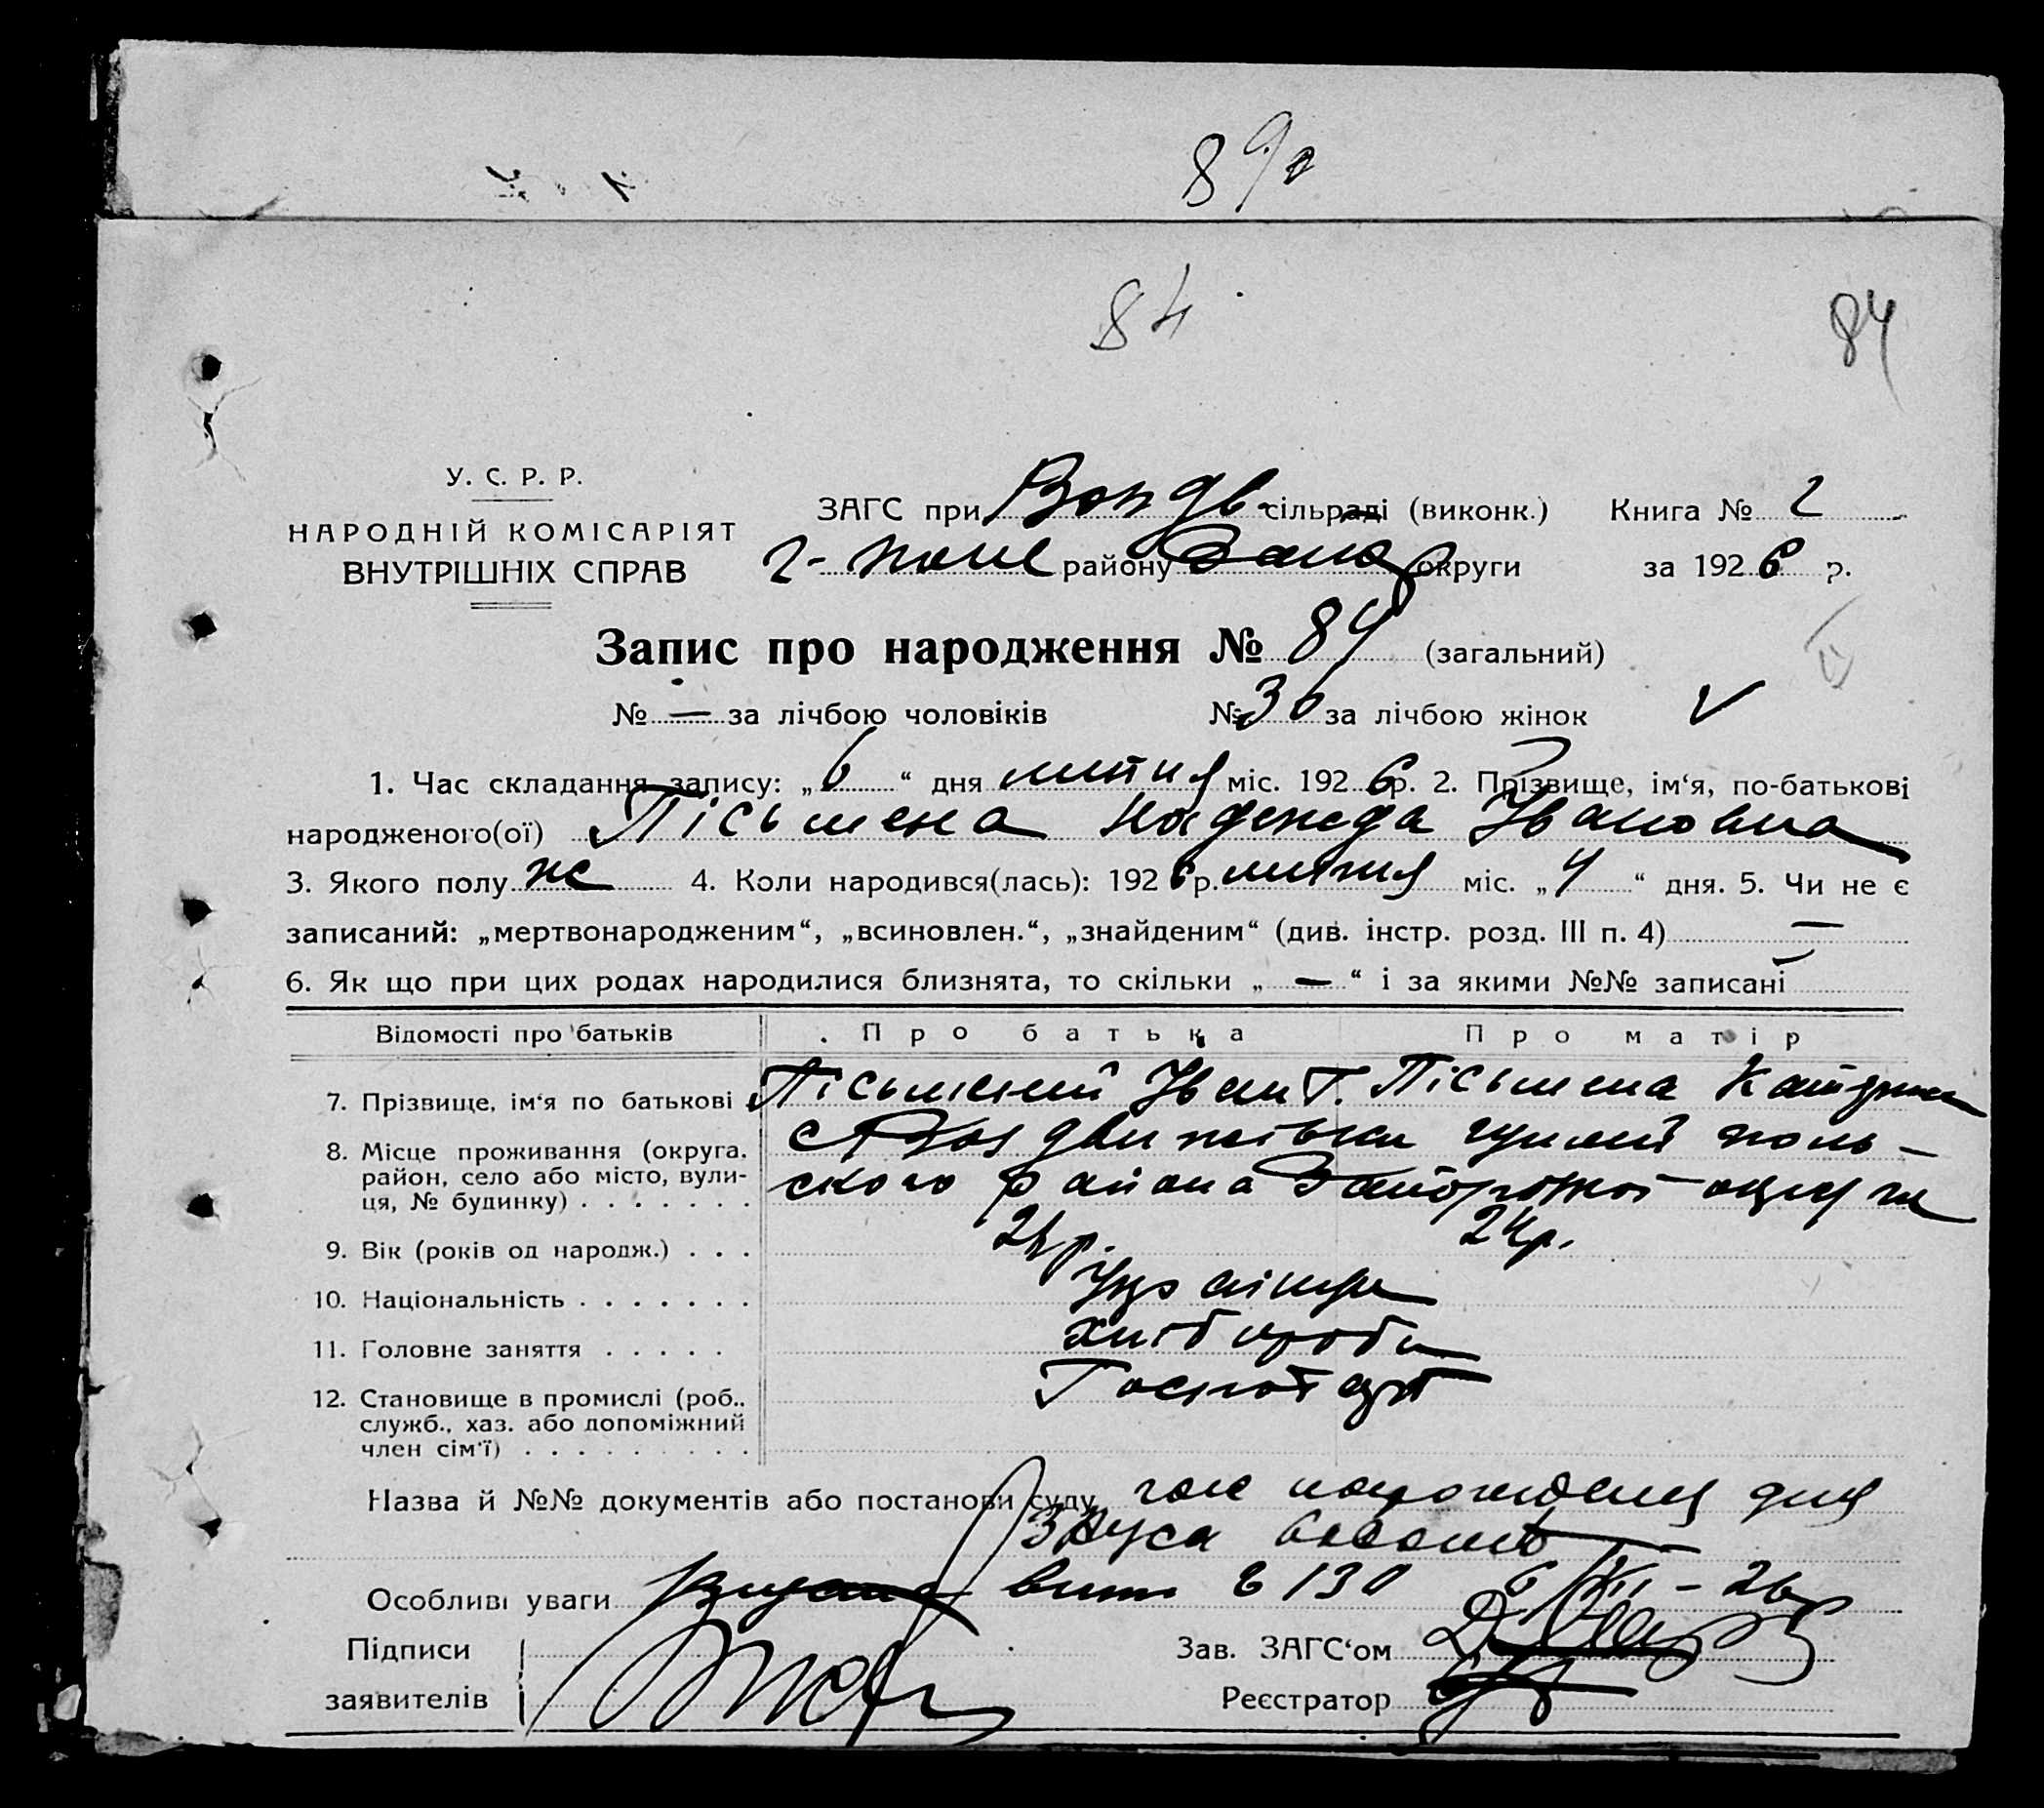 84
84
У. С. Р. Р.
НАРОДНІЙ КОМІСАРІЯТ
ВНУТРІШНІХ СПРАВ
ЗАГС при Воздв. сільраді (виконк.) Книга № 2
г-поле району Запор округи за 1926 р.
Запис про народження № 84 (загальний)
№ — за лічбою чоловіків № 36 за лічбою жінок
1. Час складання запису: „6“ дня липня міс. 1926 р. 2. Прізвище, ім‘я, по-батькові
народженого(ої) Пісьмена Надежда Івановна
3. Якого полу ж 4. Коли народився(лась): 1926 р. липня міс. „4“ дня. 5. Чи не є
записаний: „мертвонародженим“, „всиновлен.“, „знайденим“ (див. інстр. розд. III п. 4) —
6. Як що при цих родах народилися близнята, то скільки „—“ і за якими №№ записані
Відомості про батьків Про батька Про матір
7. Прізвище, ім‘я по батькові Пісьмений Іван Г. Пісьмена Катерина
8. Місце проживання (округа, с Воздвижівки гуляй поль-
район, село або місто, вули- ского района Запорожої округи
ця, № будинку)
9. Вік (років од народж.) 24р.
10. Національність Українци
11. Головне заняття хлібороби
12. Становище в промислі (роб.,
служб., хаз. або допоміжний
член сім‘ї)
Назва й №№ документів або постанови суду
Особливі уваги
Підписи Зав. ЗАГС‘ом
заявителів Реєстратор